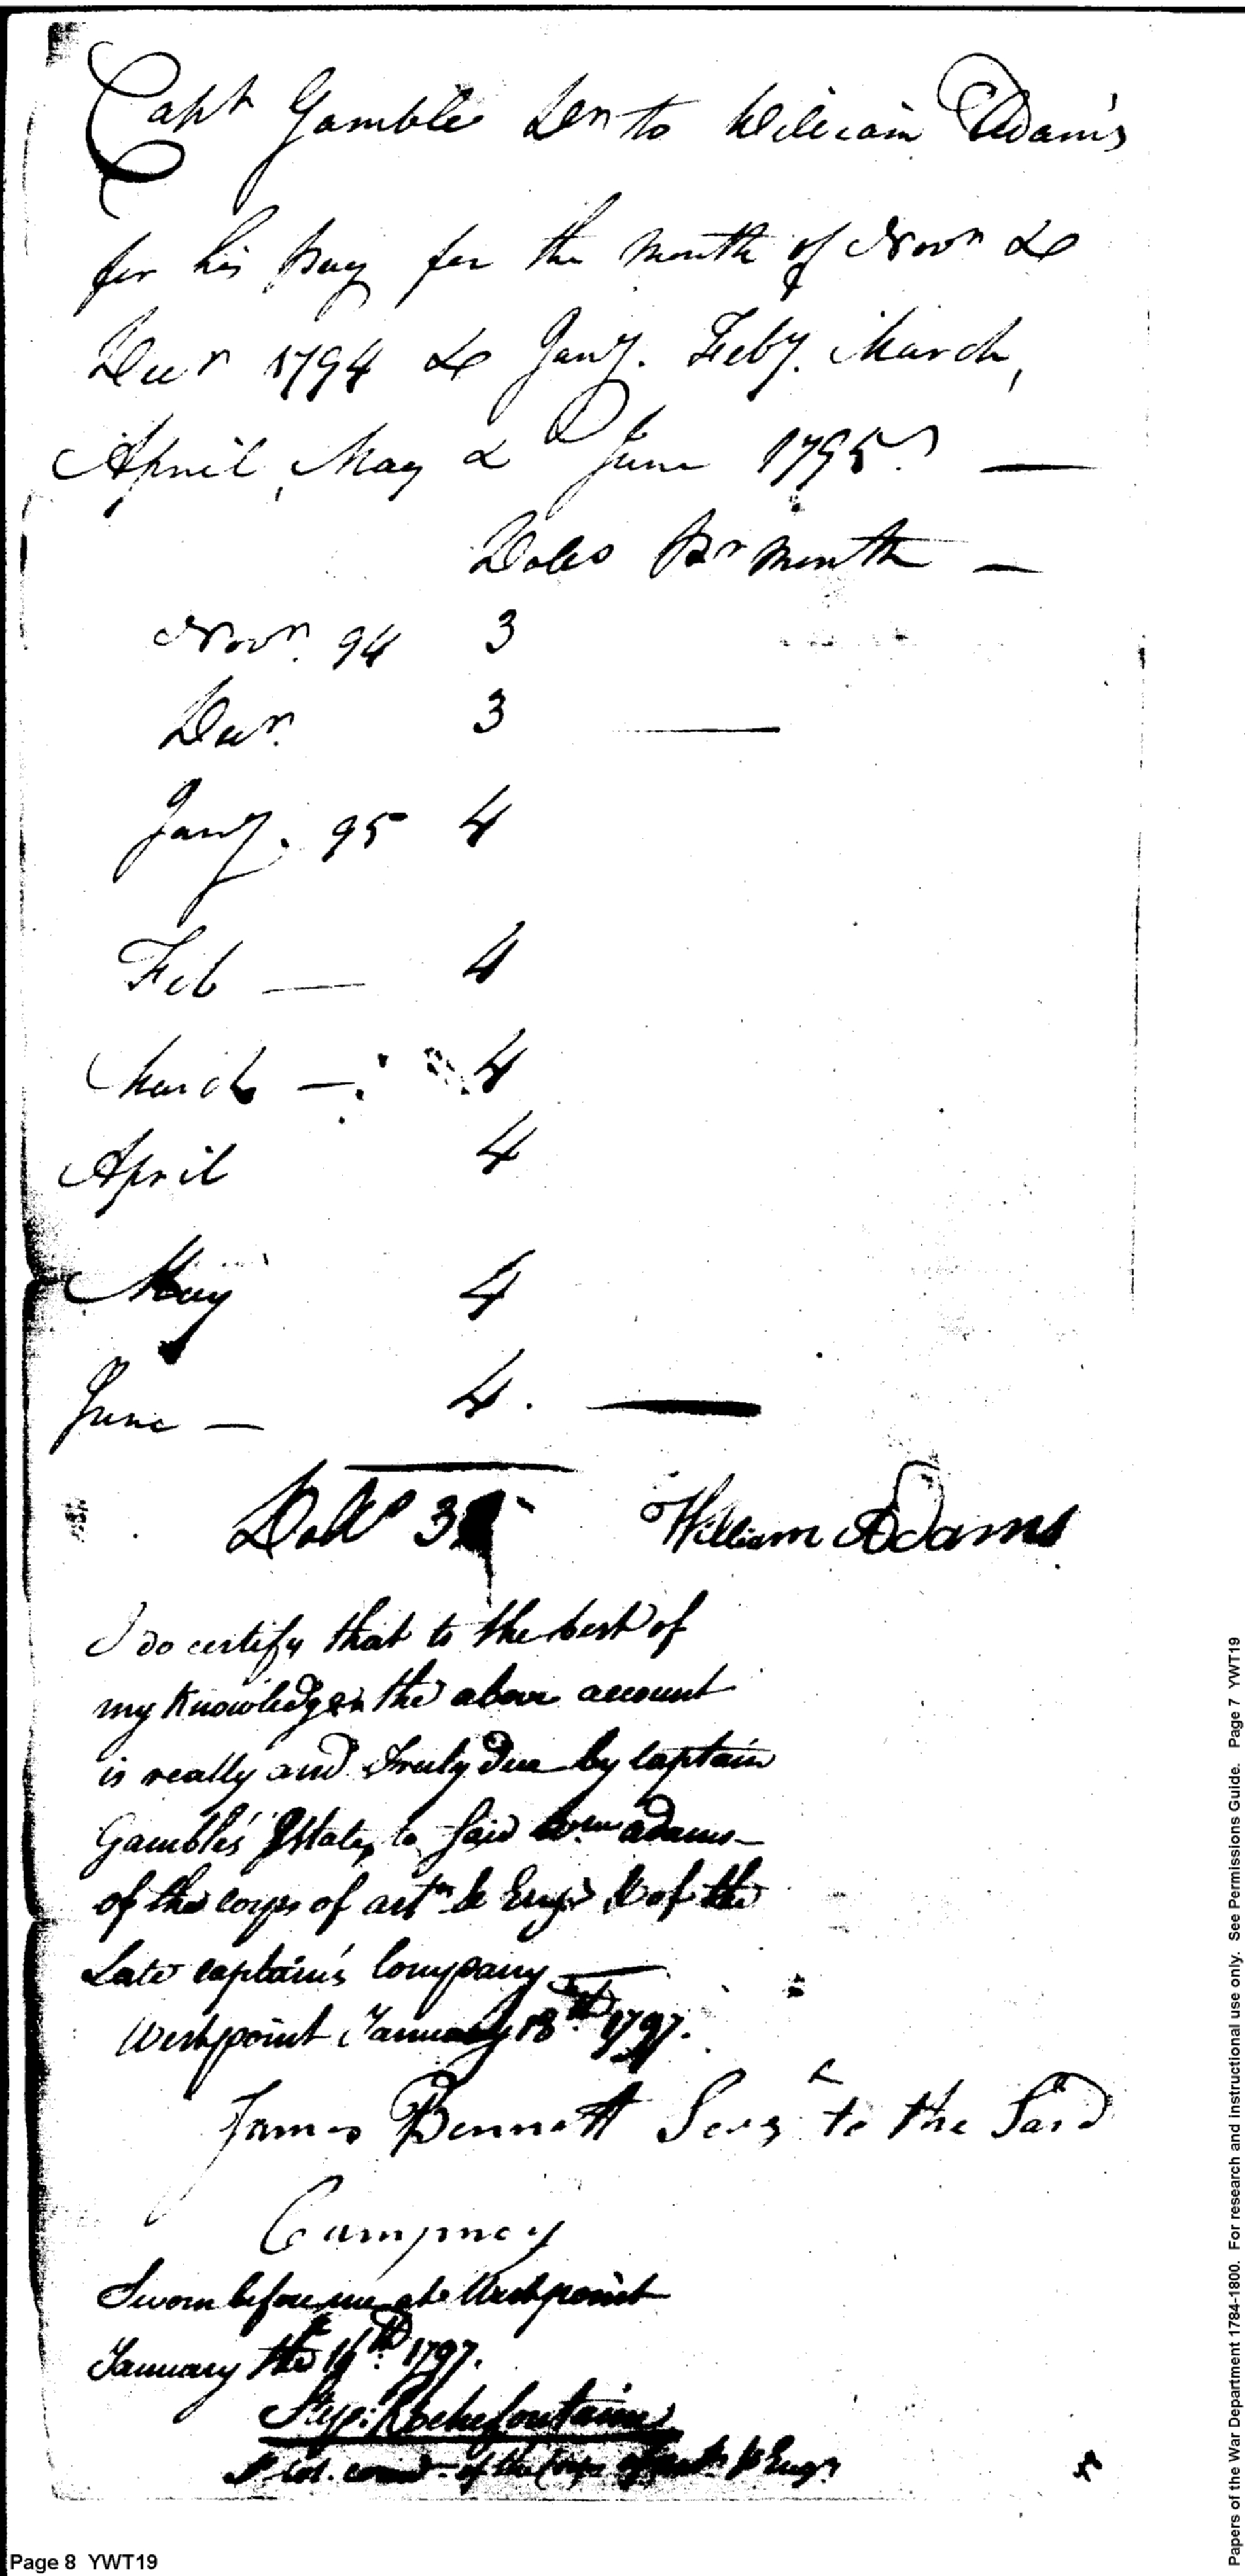 Capt Gamble Dr to William Adams
for his pay for the month of Novr &
Decr 1794 & Jany. Feby. March,
April, May & June 1795. —
Dolls Pr month —
Novr. 94 3
Decr. 3 —
Jany. 95 4
Feb — 4
March — 4
April 4
May 4
June — 4. —
Dolls 3
William Adams
I do certify that to the best of
my Knowledge the above account
is really and truly due by Captain
Gamble's Estate, to Said Wm adams —
of the corps of arty & Engrs & of the
Late captain's Company —
Westpoint January 18th 1797.
James Bennett Serg to the Said
Compney
Sworn before me at Westpoint
January the 1797.
Step: Rochefontaine
Lt Col. comdt of the Corps of arts & Engrs
Page 8 YWT19
Papers of the War Department 1784-1800. For research and instructional use only. See Permissions Guide. Page 7 YWT19